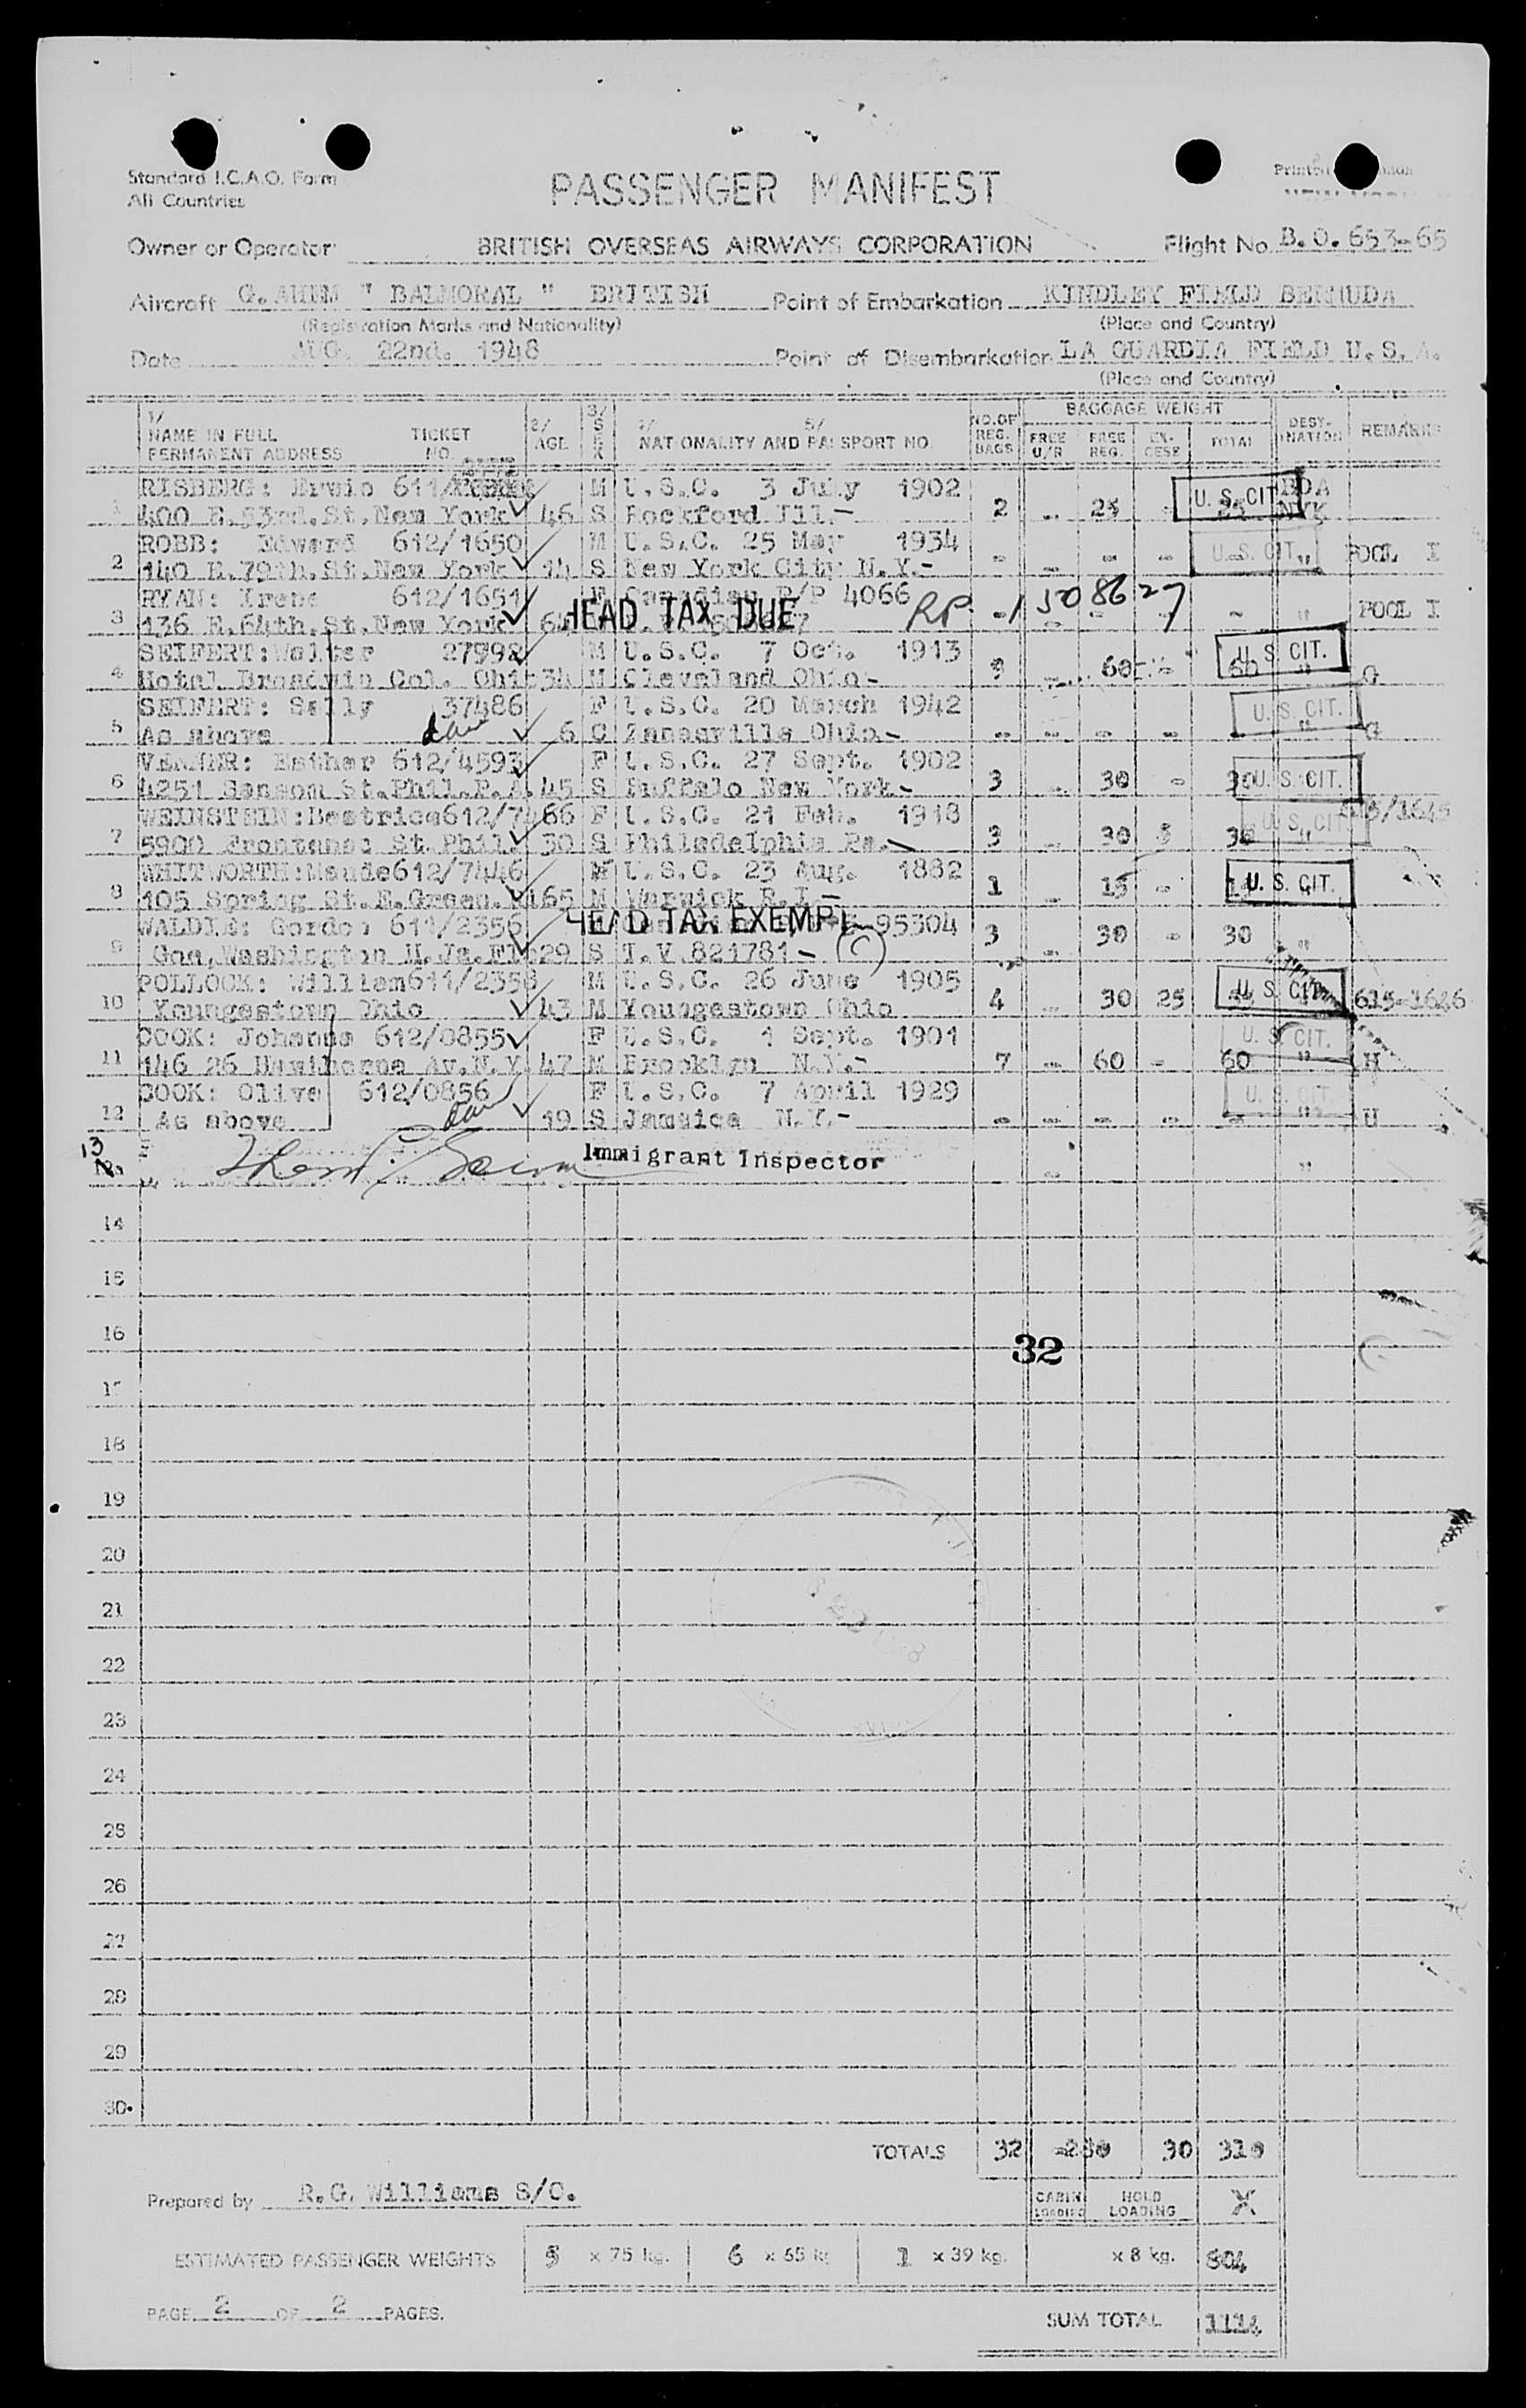 Standard I.C.A.O. Form
All Countries
PASSENGER MANIFEST
Printed
Owner or Operator BRITISH OVERSEAS AIRWAYS CORPORATION Flight No. B.O. 653-65
Aircraft G.AHEM " BALMORAL " BRITISH Point of Embarkation KINDLEY FIELD BERMUDA
(Registration Marks and Nationality) (Place and Country)
Date AUG. 22nd. 1948 Point of Disembarkation LA GUARDIA FIELD U.S.A.
(Place and Country)
1/ NAME IN FULL PERMANENT ADDRESS TICKET NO. 2/ AGE 3/ SEX 4/ 5/ NATIONALITY AND PASSPORT NO. NO. OF REG. BAGS BAGGAGE WEIGHT FREE U/R FREE REG. EX- CESS TOTAL DESTI- NATION REMARKS
RISBERG: Erwin 611/ M U.S.C. 3 July 1902 BDA
1 400 E.53rd.St.New York 46 S Rockford Ill.- 2 - 25 - 25 U.S. CIT. NYK
ROBB: Edward 612/1650 M U.S.C. 25 May 1934
2 140 E.79th.St.New York 14 S New York City N.Y.- - - - - U.S. CIT. " POOL I
RYAN: Irene 612/1651 F Canadian P/P 4066
3 136 E.64th.St.New York 64 HEAD TAX DUE RP - 1508627 - " POOL I
SEIFERT: Walter 27992 M U.S.C. 7 Oct. 1913
4 Hotel Broadwin Col. Ohi 34 M Cleveland Ohio- 9 - 60 - 60 U.S. CIT. " G
SEIFERT: Sally 37486 F U.S.C. 20 March 1942
5 As above dau 6 C Zanesville Ohio- - - - - U.S. CIT. " G
Esther 612/4593 F U.S.C. 27 Sept. 1902
6 4251 Sansom St.Phil.P.A. 45 S Buffalo New York- 3 - 30 - 30 U.S. CIT.
WEINSTEIN: Beatrice 612/7466 F U.S.C. 21 Feb. 1918 615/1645
7 5900 St. Phil. 30 S Philadelphia Pa.- 3 - 30 5 U.S. CIT. "
WHITWORTH: Maude 612/7446 U.S.C. 23 Aug. 1882
8 105 Spring St.E.Green. 65 M Warwick R.I.- 1 - 15 - U.S. CIT. "
WALDIE: Gordon 611/2356 HEAD TAX EXEMPT 95304
9 Washington 29 S T.V. 821781- (C) 3 - 30 - 30 "
POLLOCK: William 611/2358 M U.S.C. 26 June 1905
10 Youngestown Ohio 43 M Youngestown Ohio 4 - 30 25 U.S. CIT. 615-1646
COOK: Johanna 612/0855 F U.S.C. 1 Sept. 1901
11 146 26 Hawthorne Av.N.Y. 47 M Brooklyn N.Y.- 7 - 60 - 60 U.S. CIT. " H
COOK: Olive 612/0856 F U.S.C. 7 April 1929
12 As above dau 19 S Jamaica N.Y.- - - - - - U.S. CIT. " H
13 Immigrant Inspector - "
14
15
16
32
17
18
19
20
21
22
23
24
25
26
27
28
29
30
TOTALS 32 -280 30 310
Prepared by R.G. Williams S/O. CABIN LOADING HOLD LOADING X
ESTIMATED PASSENGER WEIGHTS 5 x 75 kg. 6 x 65 kg 1 x 39 kg. x 8 kg. 804
PAGE 2 OF 2 PAGES.
SUM TOTAL 1114